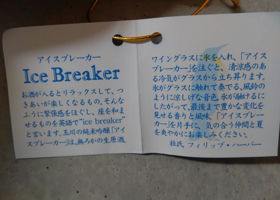 アイスブレーカー
Ice Breaker
お酒が入るとリラックスして、つ
きあいが楽しくなるもの。そんな
ふうに緊張感をほぐし、座を和ま
せるものを英語で"ice breaker"
と言います。玉川の純米吟醸「アイ
スブレーカー」は、無ろかの生原酒
ワイングラスに氷を入れ、「アイス
ブレーカー」を注ぐと、清涼感のあ
る冷気がグラスから立ち昇ります。
氷がグラスに触れて奏でる、風鈴の
ように涼しげな音色。氷が融けるに
したがって、最後まで豊かな変化を
見せる香りと風味。「アイスブレー
カー」を片手に、気の合う仲間と夏
を爽やかにお楽しみください。
杜氏 フィリップ・ハーパー